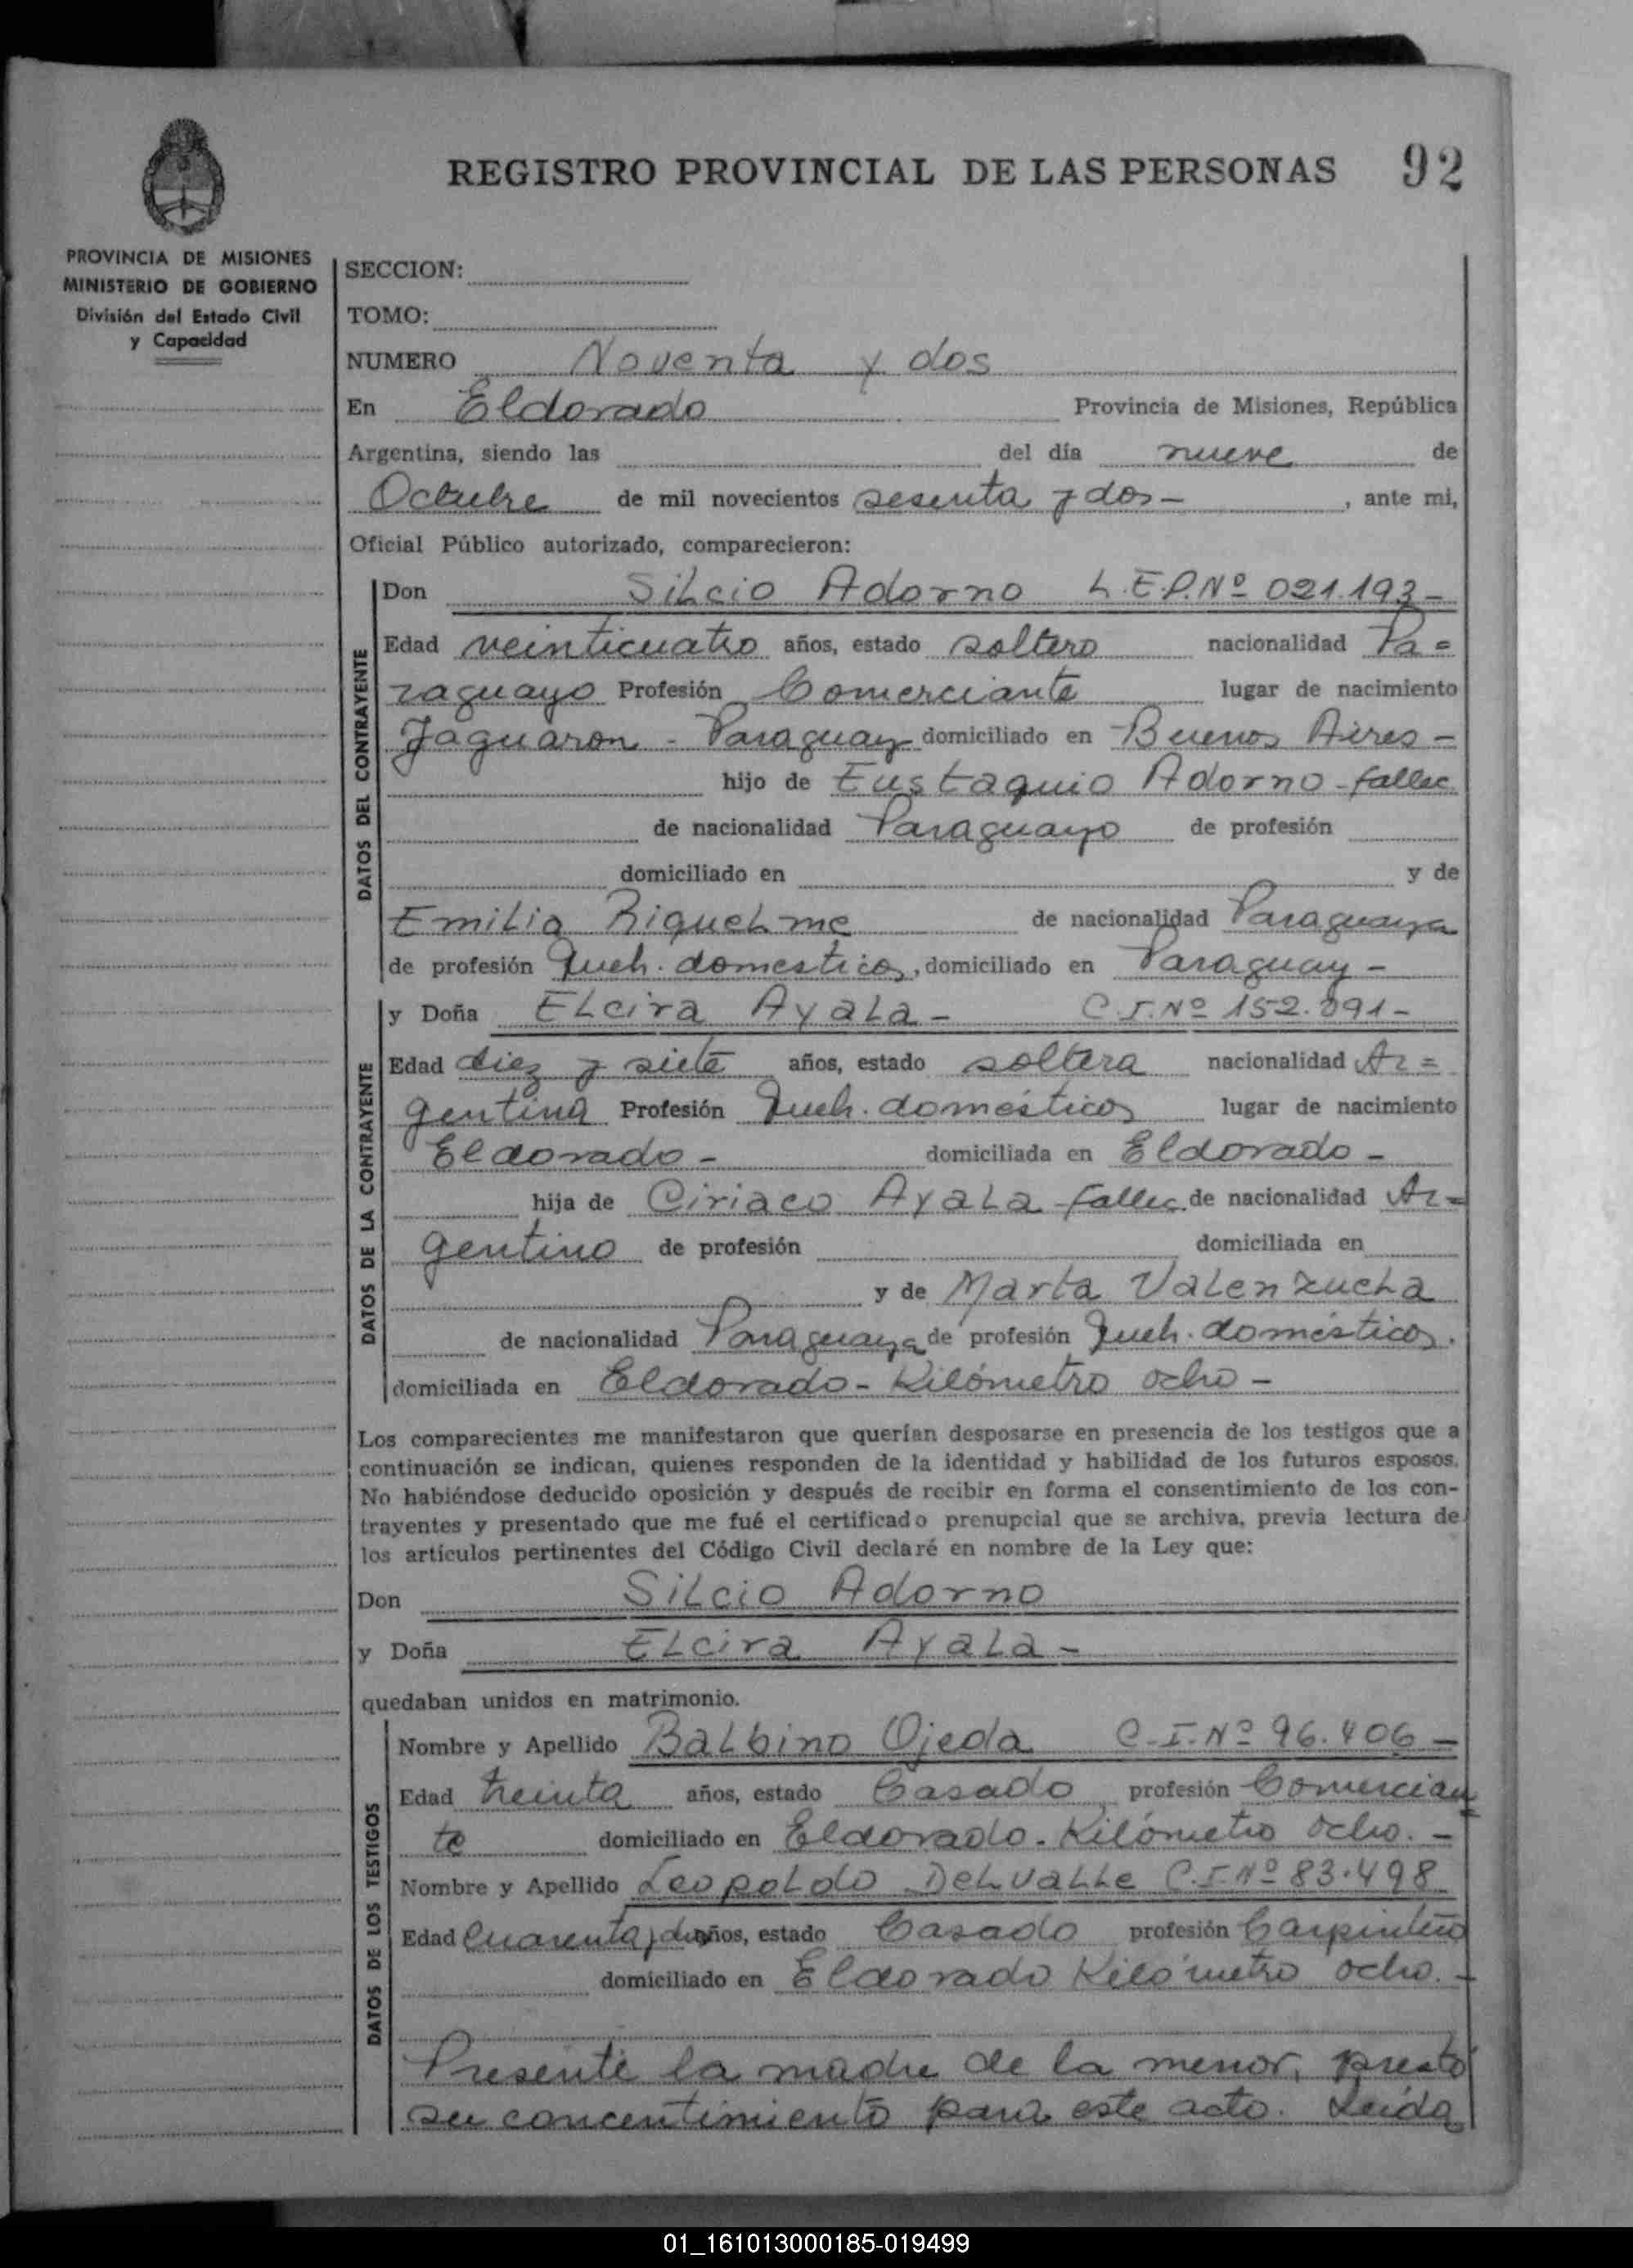 REGISTRO PROVINCIAL DE LAS PERSONAS 92
PROVINCIA DE MISIONES
MINISTERIO DE GOBIERNO
División del Estado Civil
y Capacidad
SECCION:
TOMO:
NUMERO Noventa y dos
En Eldorado Provincia de Misiones, República
Argentina, siendo las del día nueve de
Octubre de mil novecientos sesenta y dos- , ante mi,
Oficial Público autorizado, comparecieron:
DATOS DEL CONTRAYENTE
Don Silcio Adorno L.E.P.Nº 021.193-
Edad veinticuatro años, estado soltero nacionalidad Pa=
raguayo Profesión Comerciante lugar de nacimiento
Jaguaron - Paraguay domiciliado en Buenos Aires-
hijo de Eustaquio Adorno-fallec
de nacionalidad Paraguayo de profesión
domiciliado en y de
Emilia Riquelme de nacionalidad Paraguaya
de profesión Queh. domesticos, domiciliado en Paraguay-
DATOS DE LA CONTRAYENTE
y Doña Elcira Ayala- C.I.Nº 152.891-
Edad diez y siete años, estado soltera nacionalidad Ar=
gentina Profesión Queh. domésticos lugar de nacimiento
Eldorado- domiciliada en Eldorado-
hija de Ciriaco Ayala-fallec. de nacionalidad Ar=
gentino de profesión domiciliada en
y de Marta Valenzuela
de nacionalidad Paraguaya de profesión Queh. domésticos.
domiciliada en Eldorado-Kilómetro ocho-
Los comparecientes me manifestaron que querían desposarse en presencia de los testigos que a
continuación se indican, quienes responden de la identidad y habilidad de los futuros esposos.
No habiéndose deducido oposición y después de recibir en forma el consentimiento de los con-
trayentes y presentado que me fué el certificado prenupcial que se archiva, previa lectura de
los artículos pertinentes del Código Civil declaré en nombre de la Ley que:
Don Silcio Adorno
y Doña Elcira Ayala-
quedaban unidos en matrimonio.
DATOS DE LOS TESTIGOS
Nombre y Apellido Balbino Ojeda C.I.Nº 96.406-
Edad treinta años, estado Casado profesión Comercian
te domiciliado en Eldorado-Kilómetro ocho.-
Nombre y Apellido Leopoldo Delvalle C.I.Nº 83.498
Edad Cuarenta y años, estado Casado profesión Carpintero
domiciliado en Eldorado Kilómetro ocho.-
Presente la madre de la menor, prestó
su concentimiento para este acto. Leída
01_161013000185-019499